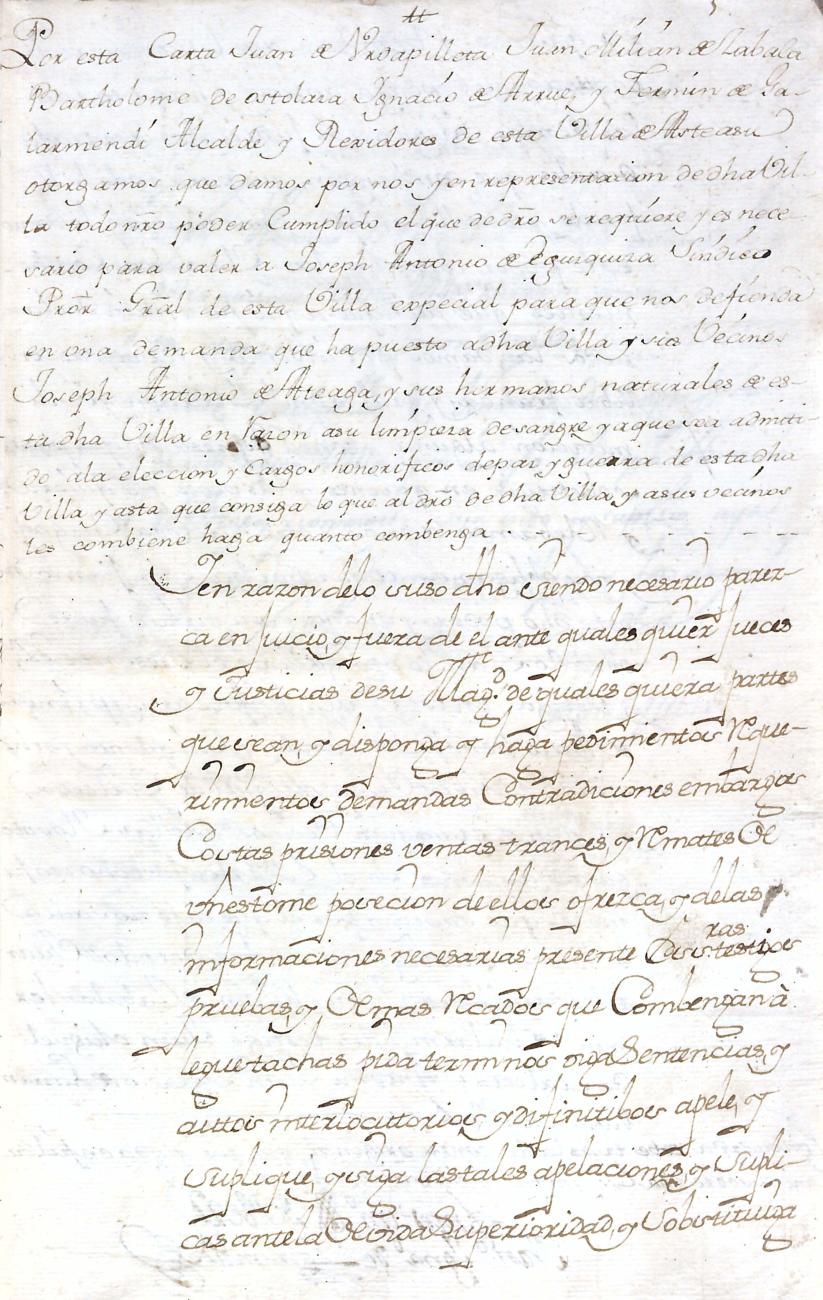 Por esta Carta Juan de Vrdapilleta Juan Millán de Zabala
Bartholome de ostolaza Ignacio de Arrue, y Fermin de Ga-
larmendi Alcalde y Rexidores de esta Villa de Asteasu
otorgamos que damos por nos y en representacion de dha Vil-
la todo nro poder Cumplido el que de dro se requiere y es nece-
sario para valer a Joseph Antonio de Eguzquiza Sindico
Pror Gral de esta Villa expecial para que nos defienda
en vna demanda que ha puesto adha Villa y sus Vecinos
Joseph Antonio de Ateaga, y sus hermanos naturales de es-
ta dha Villa en razon asu limpieza de sangre y aque sea admiti-
do ala eleccion y Cargos honorificos depaz y guerra de esta dha
Villa y asta que consiga lo que al dro de dha Villa, y asus vecinos
les combiene haga quanto combenga
Jen razon delo suso dho siendo necesario parez-
ca en Juicio, y fuera de el ante quales quier Jueces
y Justicias desu Magd. de quales quiera partes
que sean, y disponga y haga pedimientos Reque-
rimientos demandas Contradiciones embargos
Costas prisiones ventas trances y Remates De
vienes tome posecion de ellos ofrezca, y delas
informaciones necesarias presente Escrisras testigos
pruebas, y Demas Recados que Combengan à
leque tachas pida terminos oiga Sentencias, y
auttos interlocuttorios, y difinitibos apele, y
suplique, y siga las tales apelaciones, y supli-
cas ante la Devida Superioridad, y Sobstituiga